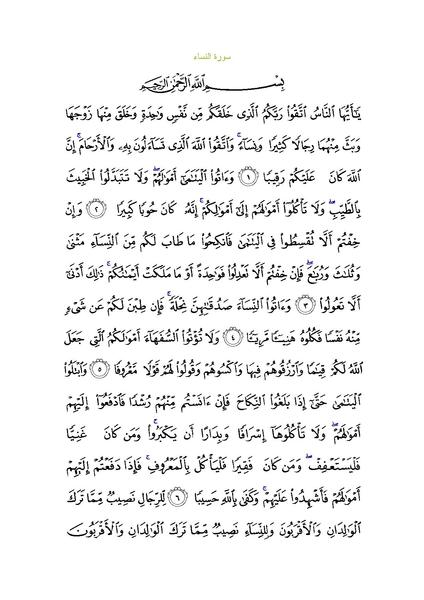 سورة النساء
بِسْمِ ٱللَّهِ ٱلرَّحْمَٰنِ ٱلرَّحِيمِ
يَٰٓأَيُّهَا ٱلنَّاسُ ٱتَّقُوا۟ رَبَّكُمُ ٱلَّذِى خَلَقَكُم مِّن نَّفْسٍ وَٰحِدَةٍ وَخَلَقَ مِنْهَا زَوْجَهَا
وَبَثَّ مِنْهُمَا رِجَالًا كَثِيرًا وَنِسَآءً ۚ وَٱتَّقُوا۟ ٱللَّهَ ٱلَّذِى تَسَآءَلُونَ بِهِۦ وَٱلْأَرْحَامَ ۚ إِنَّ
ٱللَّهَ كَانَ عَلَيْكُمْ رَقِيبًا ﴿١﴾ وَءَاتُوا۟ ٱلْيَتَٰمَىٰٓ أَمْوَٰلَهُمْ ۖ وَلَا تَتَبَدَّلُوا۟ ٱلْخَبِيثَ
بِٱلطَّيِّبِ ۖ وَلَا تَأْكُلُوٓا۟ أَمْوَٰلَهُمْ إِلَىٰٓ أَمْوَٰلِكُمْ ۚ إِنَّهُۥ كَانَ حُوبًا كَبِيرًا ﴿٢﴾ وَإِنْ
خِفْتُمْ أَلَّا تُقْسِطُوا۟ فِى ٱلْيَتَٰمَىٰ فَٱنكِحُوا۟ مَا طَابَ لَكُم مِّنَ ٱلنِّسَآءِ مَثْنَىٰ
وَثُلَٰثَ وَرُبَٰعَ ۖ فَإِنْ خِفْتُمْ أَلَّا تَعْدِلُوا۟ فَوَٰحِدَةً أَوْ مَا مَلَكَتْ أَيْمَٰنُكُمْ ۚ ذَٰلِكَ أَدْنَىٰٓ
أَلَّا تَعُولُوا۟ ﴿٣﴾ وَءَاتُوا۟ ٱلنِّسَآءَ صَدُقَٰتِهِنَّ نِحْلَةً ۚ فَإِن طِبْنَ لَكُمْ عَن شَىْءٍ
مِّنْهُ نَفْسًا فَكُلُوهُ هَنِيٓـًٔا مَّرِيٓـًٔا ﴿٤﴾ وَلَا تُؤْتُوا۟ ٱلسُّفَهَآءَ أَمْوَٰلَكُمُ ٱلَّتِى جَعَلَ
ٱللَّهُ لَكُمْ قِيَٰمًا وَٱرْزُقُوهُمْ فِيهَا وَٱكْسُوهُمْ وَقُولُوا۟ لَهُمْ قَوْلًا مَّعْرُوفًا ﴿٥﴾ وَٱبْتَلُوا۟
ٱلْيَتَٰمَىٰ حَتَّىٰٓ إِذَا بَلَغُوا۟ ٱلنِّكَاحَ فَإِنْ ءَانَسْتُم مِّنْهُمْ رُشْدًا فَٱدْفَعُوٓا۟ إِلَيْهِمْ
أَمْوَٰلَهُمْ ۖ وَلَا تَأْكُلُوهَآ إِسْرَافًا وَبِدَارًا أَن يَكْبَرُوا۟ ۚ وَمَن كَانَ غَنِيًّا
فَلْيَسْتَعْفِفْ ۖ وَمَن كَانَ فَقِيرًا فَلْيَأْكُلْ بِٱلْمَعْرُوفِ ۚ فَإِذَا دَفَعْتُمْ إِلَيْهِمْ
أَمْوَٰلَهُمْ فَأَشْهِدُوا۟ عَلَيْهِمْ ۚ وَكَفَىٰ بِٱللَّهِ حَسِيبًا ﴿٦﴾ لِّلرِّجَالِ نَصِيبٌ مِّمَّا تَرَكَ
ٱلْوَٰلِدَانِ وَٱلْأَقْرَبُونَ وَلِلنِّسَآءِ نَصِيبٌ مِّمَّا تَرَكَ ٱلْوَٰلِدَانِ وَٱلْأَقْرَبُونَ